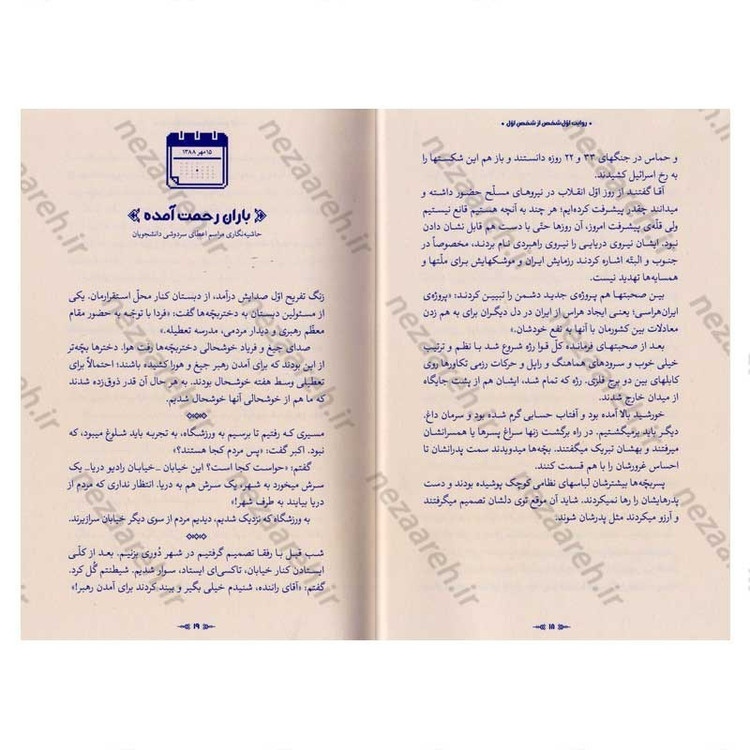 • روایت اوّل شخص از شخص اوّل •
و حماس در جنگهای ۳۳ و ۲۲ روزه دانستند و باز هم این شکستها را
به رخ اسرائیل کشیدند.
آقا گفتند از روز اوّل انقلاب در نیروهای مسلّح حضور داشته و
میدانند چقدر پیشرفت کرده‌ایم؛ هر چند به آنچه هستیم قانع نیستیم
ولی قلّه‌ی پیشرفت امروز، آن روزها حتّی با دست هم قابل نشان دادن
نبود. ایشان نیروی دریایی را نیروی راهبردی نام بردند، مخصوصاً در
جنوب و البتّه اشاره کردند رزمایش ایران و موشکهایش برای ملّتها و
همسایه‌ها تهدید نیست.
بین صحبتها هم پروژه‌ی جدید دشمن را تبیین کردند: «پروژه‌ی
ایران‌هراسی؛ یعنی ایجاد هراس از ایران در دل دیگران برای به هم زدن
معادلات بین کشورمان با آنها به نفع خودشان.»
بعد از صحبتهای فرمانده کلّ قوا رژه شروع شد با نظم و ترتیب
خیلی خوب و سرودهای هماهنگ و راپل و حرکات رزمی تکاورها روی
کابلهای بین دو برج فلزی. رژه که تمام شد، ایشان هم از پشت جایگاه
از میدان خارج شدند.
خورشید بالا آمده بود و آفتاب حسابی گرم شده بود و سرمان داغ.
دیگر باید برمیگشتیم. در راه برگشت زنها سراغ پسرها یا همسرانشان
میرفتند و بهشان تبریک میگفتند. بچّه‌ها میدویدند سمت پدرانشان تا
احساس غرورشان را با هم قسمت کنند.
پسربچّه‌ها بیشترشان لباسهای نظامی کوچک پوشیده بودند و دست
پدرهایشان را رها نمیکردند. شاید آن موقع توی دلشان تصمیم میگرفتند
و آرزو میکردند مثل پدرشان شوند.
۱۸
۱۵ مهر ۱۳۸۸
باران رحمت آمده
حاشیه‌نگاری مراسم اعطای سردوشی دانشجویان
زنگ تفریح اوّل صدایش درآمد، از دبستان کنار محلّ استقرارمان. یکی
از مسئولین دبستان به دختربچّه‌ها گفت: «فردا با توجّه به حضور مقام
معظّم رهبری و دیدار مردمی، مدرسه تعطیله.»
صدای جیغ و فریاد خوشحالی دختربچّه‌ها رفت هوا. دخترها بچّه‌تر
از این بودند که برای آمدن رهبر جیغ و هورا کشیده باشند؛ احتمالاً برای
تعطیلی وسط هفته خوشحال بودند. به هر حال آن قدر ذوق‌زده شدند
که ما هم از خوشحالی آنها خوشحال شدیم.
مسیری که رفتیم تا برسیم به ورزشگاه، به تجربه باید شلوغ میبود، که
نبود. اکبر گفت: «پس مردم کجا هستند؟»
گفتم: «حواست کجا است؟ این خیابان ـ خیابان رادیو دریا ـ یک
سرش میخورد به شهر، یک سرش هم به دریا. انتظار نداری که مردم از
دریا بیایند به طرف شهر!»
به ورزشگاه که نزدیک شدیم، دیدیم مردم از سوی دیگر خیابان سرازیرند.
شب قبل با رفقا تصمیم گرفتیم در شهر دُوری بزنیم. بعد از کلّی
ایستادن کنار خیابان، تاکسی‌ای ایستاد، سوار شدیم. شیطنتم گُل کرد.
گفتم: «آقای راننده، شنیدم خیلی بگیر و ببند کردند برای آمدن رهبر!»
۱۹
nezaareh.ir